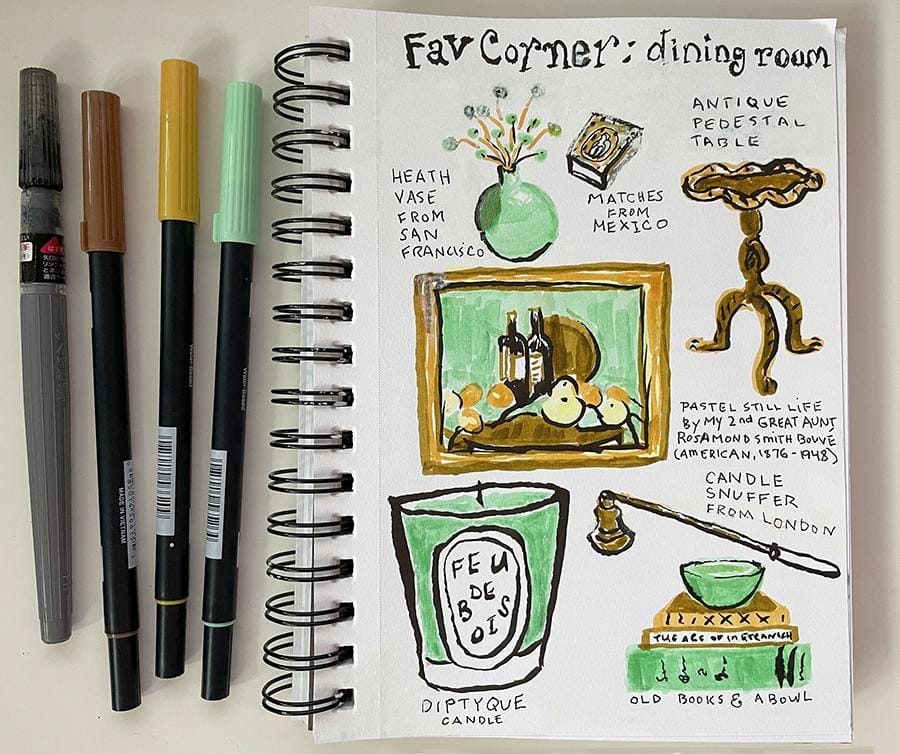 Fav Corner: dining room
ANTIQUE
PEDESTAL
TABLE
HEATH
VASE
FROM
SAN
FRANCISCO
MATCHES
FROM
MEXICO
PASTEL STILL LIFE
BY MY 2nd GREAT AUNT
ROSAMOND SMITH BOUVÉ
(AMERICAN, 1876-1948)
CANDLE
SNUFFER
FROM LONDON
FEU
DE
BOIS
DIPTYQUE
CANDLE
THE ART OF
OLD BOOKS & A BOWL
MADE IN VIETNAM
Water-Based
Water-Based